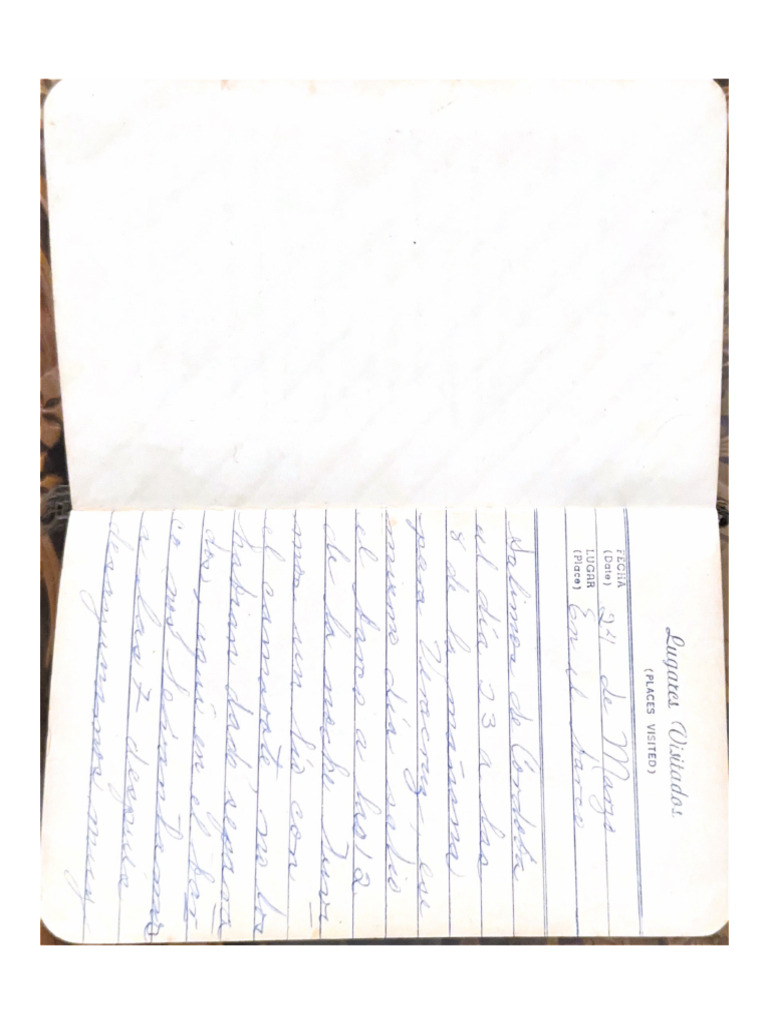 Lugares Visitados
(PLACES VISITED)
FECHA
(Date) 24 de Marzo
LUGAR
(Place) En el barco
Salimos de Cordoba
el día 23 a las
8 de la mañana
para Veracruz, ese
mismo día salio
el barco a las 12
de la noche Tuvi
mos un lío con
el camarote, no los
habian dado separa
dos, aquí en el bar
co nos levantamos
a las 7 después
desayunamos muy